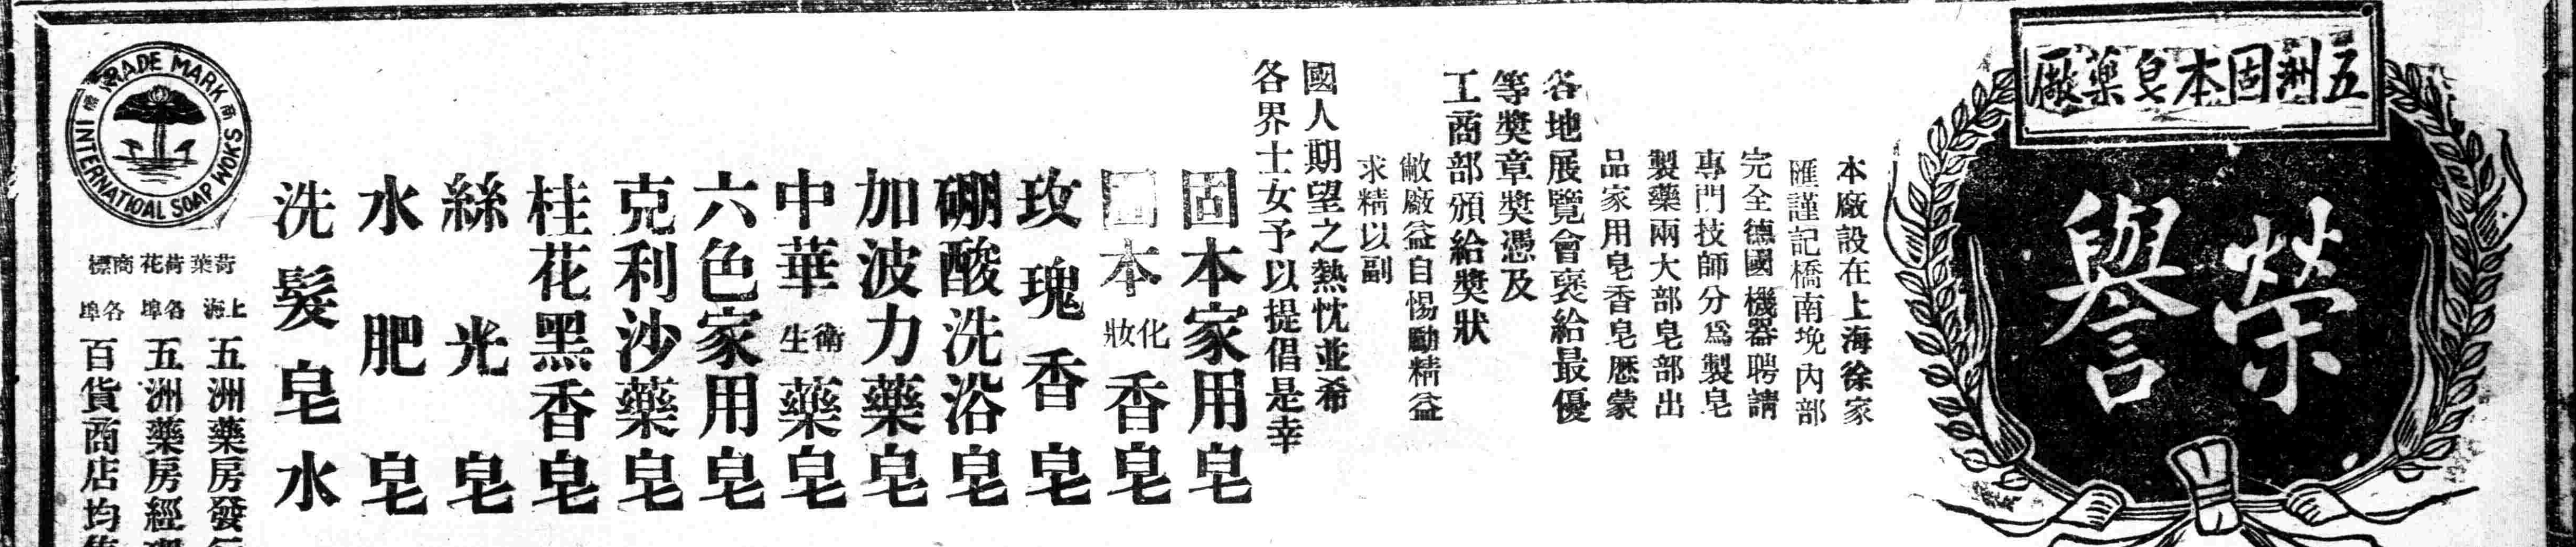 五洲固本皂藥廠
榮譽
本廠設在上海徐家
匯謹記橋南堍內部
完全德國機器聘請
專門技師分爲製皂
製藥兩大部皂部出
品家用皂香皂歷蒙
各地展覽會褒給最優
等獎章獎憑及
工商部頒給獎狀
敝廠益自惕勵精益
求精以副
國人期望之熱忱並希
各界士女予以提倡是幸
固本家用皂
固本化妝香皂
玫瑰香皂
硼酸洗浴皂
加波力藥皂
中華衛生藥皂
六色家用皂
克利沙藥皂
桂花黑香皂
絲光皂
水肥皂
洗髮皂水
TRADE MARK
商標
INTERNATIOAL SOAP WOKS
荷葉荷花商標
上海五洲藥房發
各埠五洲藥房經
各埠百貨商店均